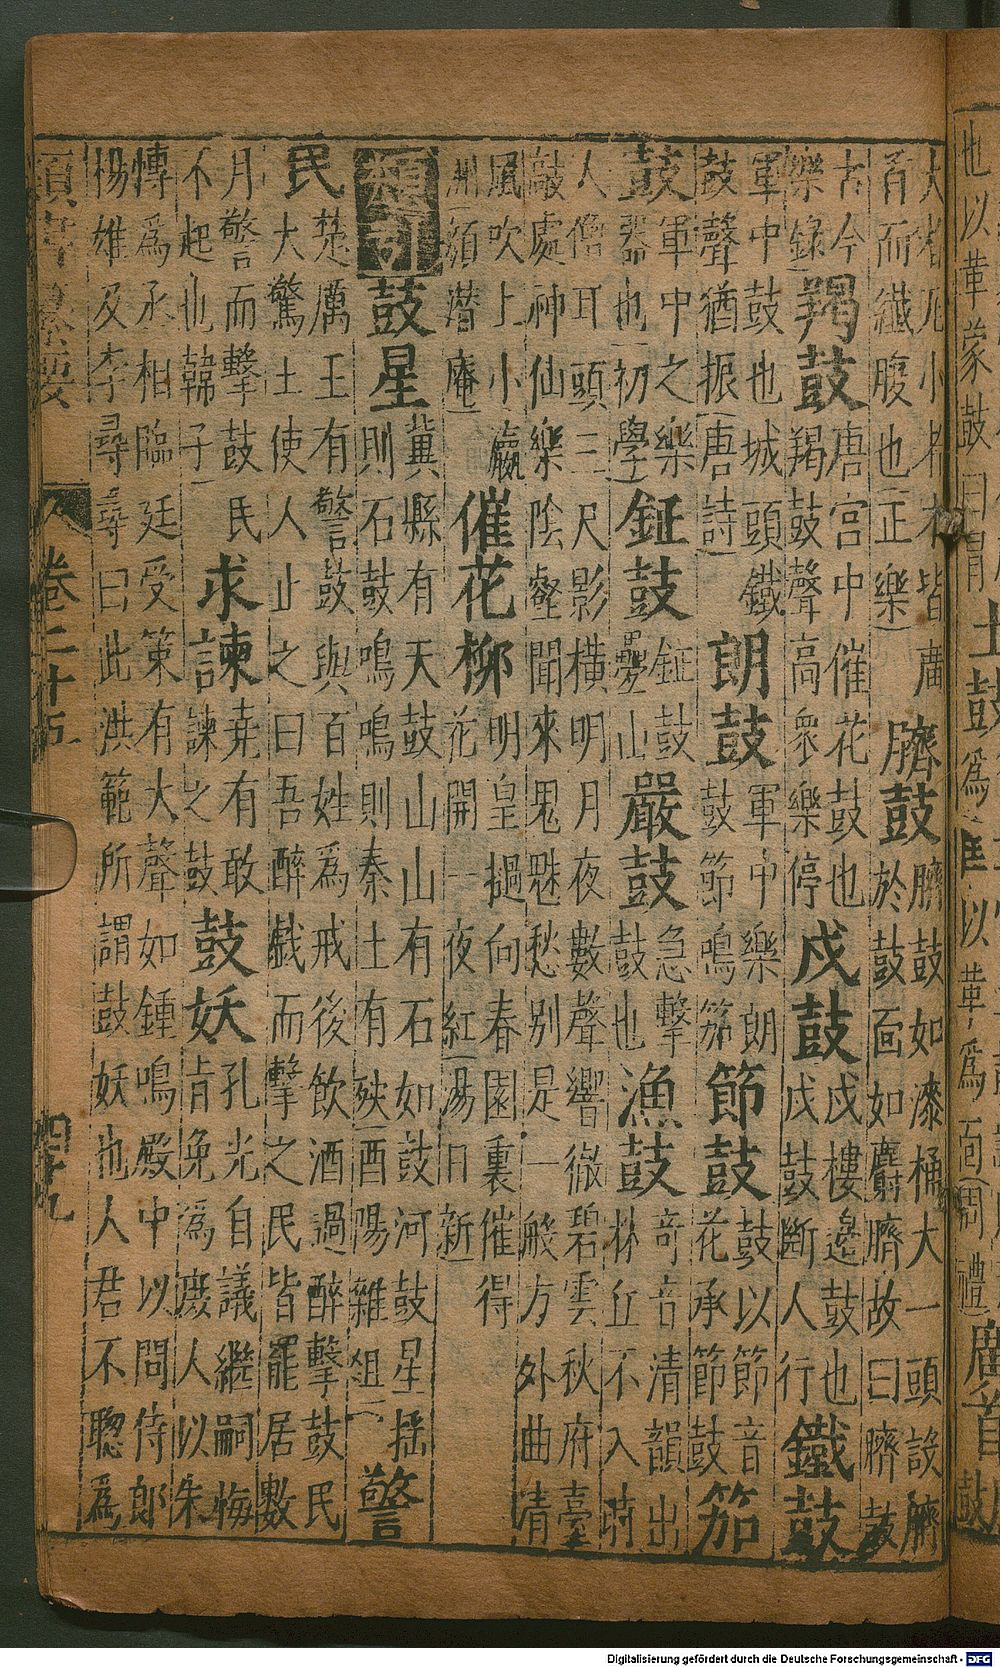 大者瓦小者木皆廣
首而纖腹也(正樂)
臍鼓
臍鼓如漆桶大一頭設臍
於鼓面如麝臍故曰臍鼓
古今
樂錄
羯鼓
唐宮中催花鼓也
羯鼓聲高衆樂停
戍鼓
戍樓邊鼓也
戍鼓斷人行
鐵鼓
軍中鼓也城頭鐵
鼓聲猶振(唐詩)
朗鼓
軍中樂朗
鼓節鳴笳
節鼓
鼓以節音
花承節鼓
笳
鼓
軍中之樂
器也(初學)
鉦鼓
鉦鼓
疊山
嚴鼓
急擊
鼓也
漁鼓
竒音清韻出
林丘不入時
人僧耳頭三尺影橫明月夜數聲響徹碧雲秋府臺
敲處神仙樂陰壑聞來鬼魅愁別是一般方外曲清
風吹上小瀛
洲(顔潛庵)
催花柳
明皇撾向春園裏催得
花開一夜紅(湯日新)
類句
鼓星
冀縣有天鼓山山有石如鼓河鼓星搖
則石鼓鳴鳴則秦土有殃(酉陽雜俎)
警
民
楚厲王有警鼓與百姓爲戒後飲酒過醉擊鼓民
大驚土使人止之曰吾醉戲而擊之民皆罷居數
月警而擊鼓民
不起也(韓子)
求諫
堯有敢
諫之鼓
鼓妖
孔光自議繼嗣悔
肯免爲庶人以朱
愽爲丞相臨廷受策有大聲如鍾鳴殿中以問侍郎
楊雄及李尋尋曰此洪範所謂鼓妖也人君不聰爲
類書纂要 卷二十五 四十九
Digitalisierung gefördert durch die Deutsche Forschungsgemeinschaft - DFG